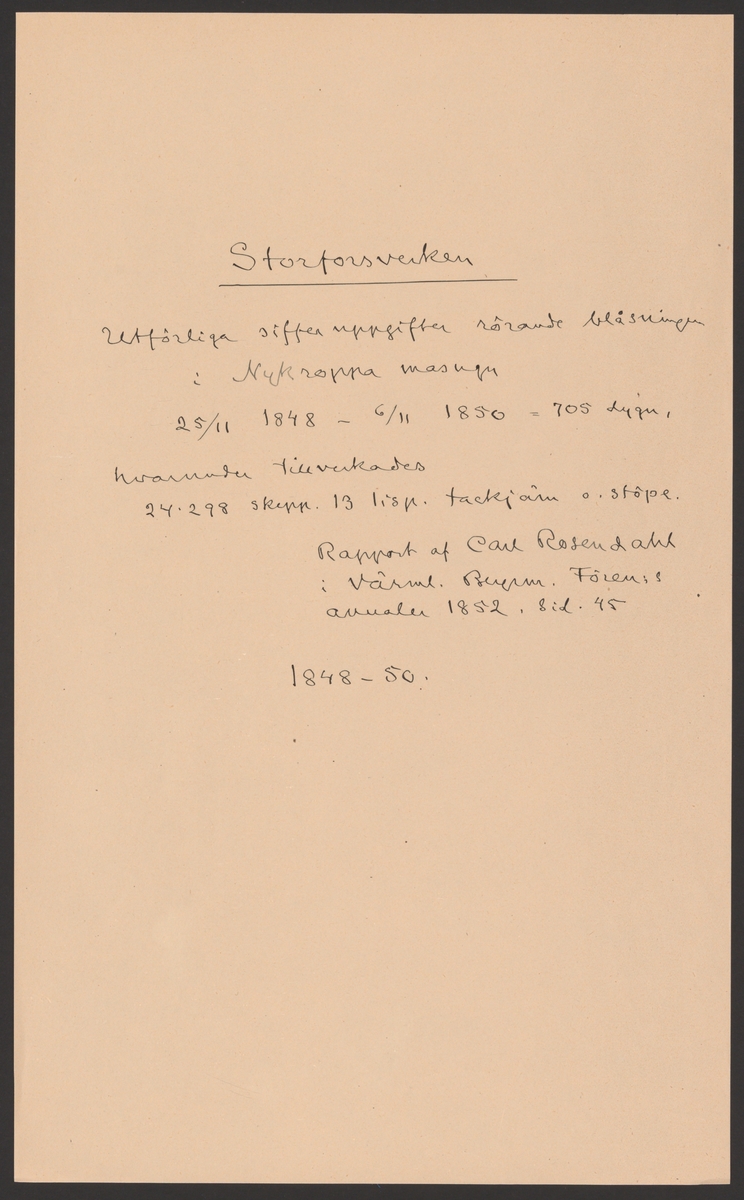 Storforsverken
Utförliga siffer uppgifter rörande blåsningen
i Nykroppa masugn
25/11 1848 – 6/11 1850 = 705 dygn,
hvarunder tillverkades
24.298 skepp. 13 lisp. tackjärn o. stöpe.
Rapport af Carl Rosendahl
i Värml. Bergsm. Fören:s
annaler 1852, Sid. 45
1848–50.